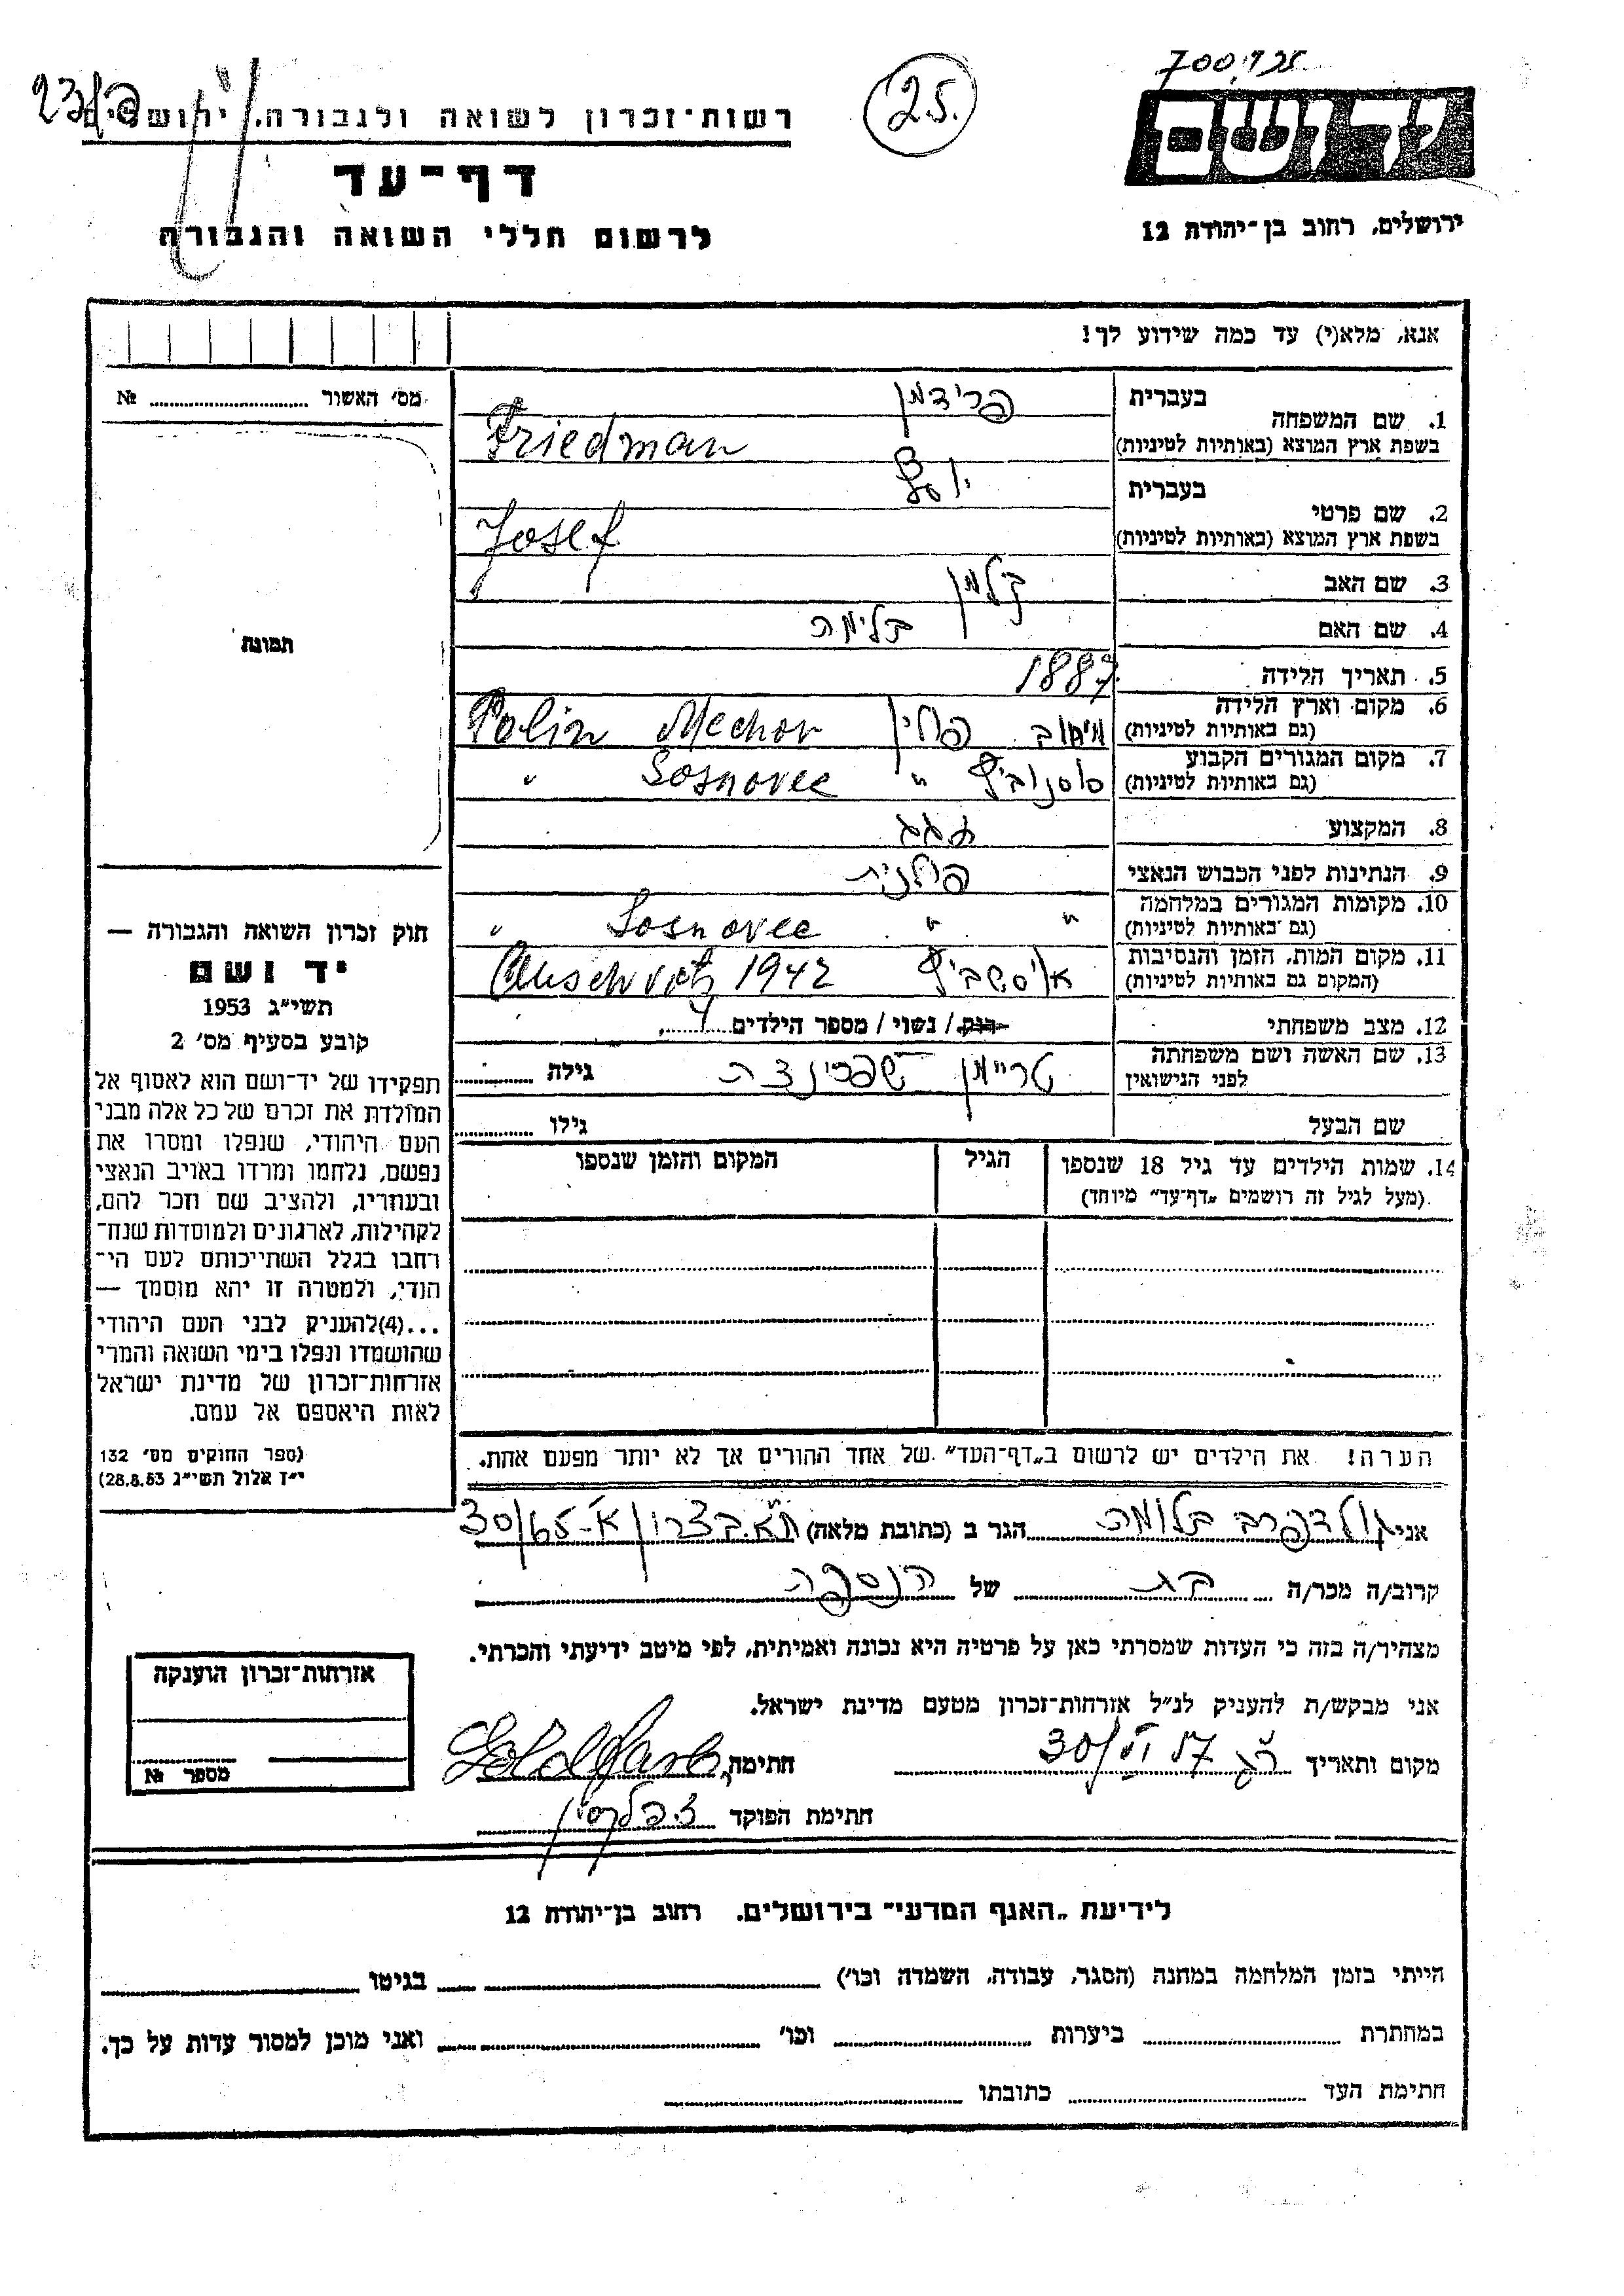 רשות-זכרון לשואה ולגבורה, ירושלים
25.
דף-עד
לרשום חללי השואה והגבורה
ירושלים, רחוב בן-יהודה 12
אנא, מלא(י) עד כמה שידוע לך!
מס׳ האשור ........ №
תמונה
בעברית
1. שם המשפחה
פרידמן
בשפת ארץ המוצא (באותיות לטיניות)
Friedman
בעברית
2. שם פרטי
יוסף
בשפת ארץ המוצא (באותיות לטיניות)
Josef
3. שם האב קלמן
4. שם האם בלימה
5. תאריך הלידה 1887
6. מקום וארץ הלידה
(גם באותיות לטיניות)
מיחוב פולין Mechov Polin
7. מקום המגורים הקבוע
(גם באותיות לטיניות)
סוסנוביץ " Sosnovec "
8. המקצוע
9. הנתינות לפני הכבוש הנאצי פולנית
10. מקומות המגורים במלחמה
(גם באותיות לטיניות)
" " Sosnovec "
11. מקום המות, הזמן והנסיבות
(המקום גם באותיות לטיניות)
אושביץ Auschvitz 1942
12. מצב משפחתי רווק / נשוי / מספר הילדים 4
13. שם האשה ושם משפחתה
לפני הנישואין
טריימן שפרינצה גילה
שם הבעל גילו
14. שמות הילדים עד גיל 18 שנספו
(מעל לגיל זה רושמים „דף-עד״ מיוחד)
הגיל
המקום והזמן שנספו
הערה! את הילדים יש לרשום ב„דף-העד״ של אחד ההורים אך לא יותר מפעם אחת.
חוק זכרון השואה והגבורה —
יד ושם
תשי״ג 1953
קובע בסעיף מס׳ 2
תפקידו של יד-ושם הוא לאסוף אל
המולדת את זכרם של כל אלה מבני
העם היהודי, שנפלו ומסרו את
נפשם, נלחמו ומרדו באויב הנאצי
ובעוזריו, ולהציב שם וזכר להם,
לקהילות, לארגונים ולמוסדות שנח־
רחבו בגלל השתייכותם לעם הי־
הודי, ולמטרה זו יהא מוסמך —
...(4)להעניק לבני העם היהודי
שהושמדו ונפלו בימי השואה והמרי
אזרחות-זכרון של מדינת ישראל
לאות היאספם אל עמם.
(ספר החוקים מס׳ 132
י״ז אלול תשי״ג 28.8.53)
אני גולדפרב בלומה הגר ב (כתובת מלאה) ת״א. בצרון א׳-30/65
קרוב/ה מכר/ה בת של הנספה
מצהיר/ה בזה כי העדות שמסרתי כאן על פרטיה היא נכונה ואמיתית, לפי מיטב ידיעתי והכרתי.
אני מבקש/ת להעניק לנ״ל אזרחות-זכרון מטעם מדינת ישראל.
מקום ותאריך חתימה Goldfarb
חתימת הפוקד
אזרחות-זכרון הוענקה
מספר №
לידיעת „האגף המדעי״ בירושלים. רחוב בן-יהודה 12
הייתי בזמן המלחמה במחנה (הסגר, עבודה, השמדה וכו׳) בגיטו
במחתרת ביערות וכו׳ ואני מוכן למסור עדות על כך.
חתימת העד כתובתו